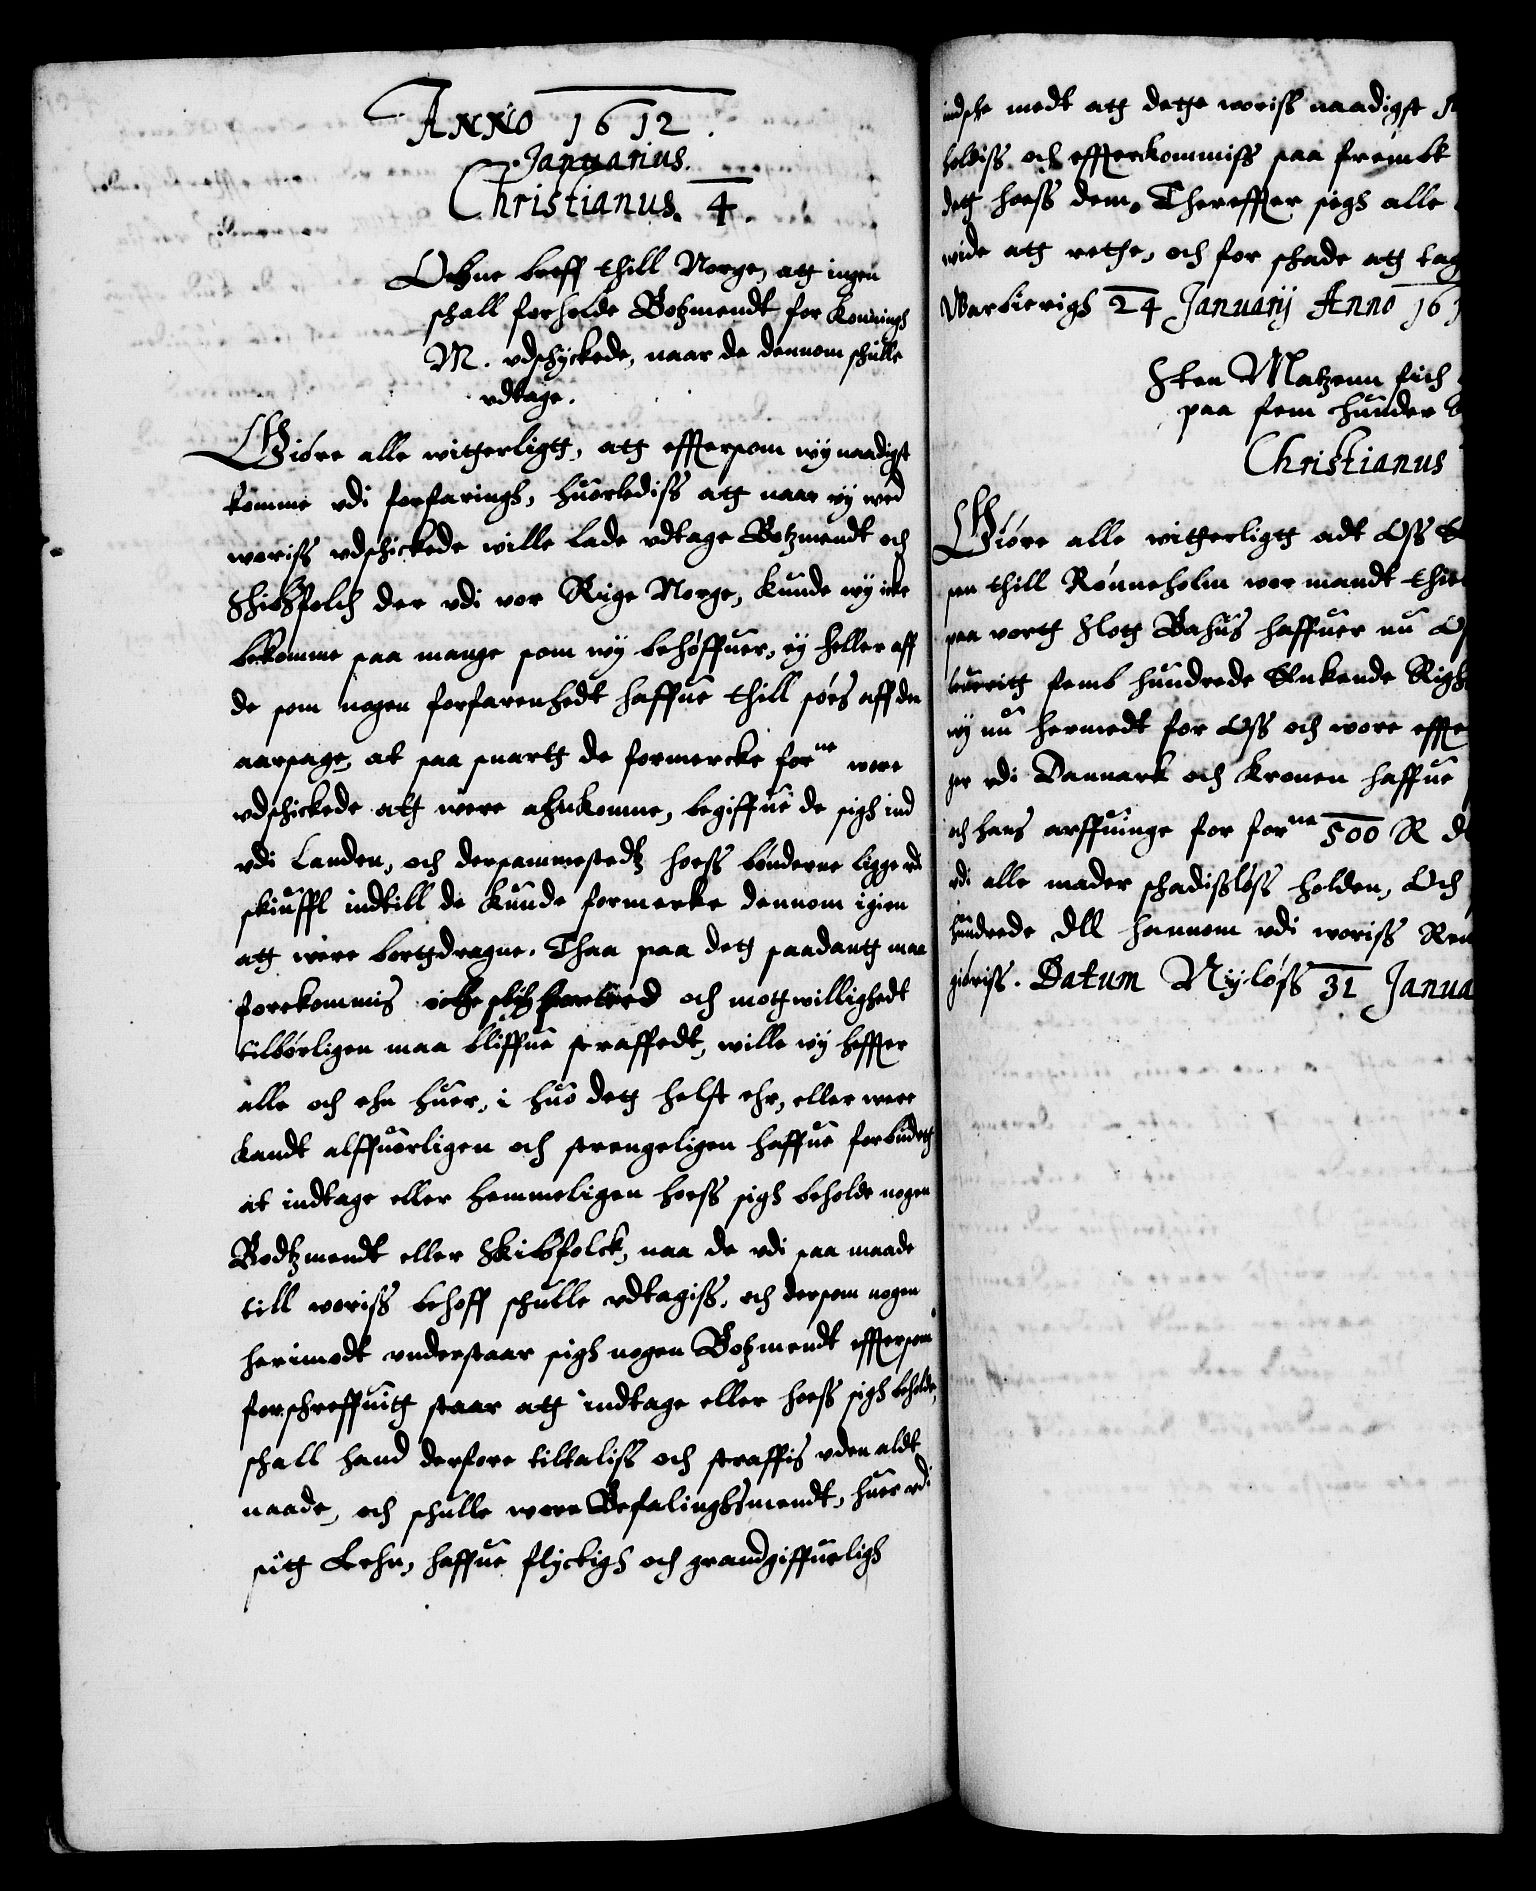 Anno 1612.
Januarius.
Christianus. 4.
Obne breff thill Norge, att ingen
schall forholde Botzmendt for Konningh
M. vdschyckede, naar de dennom schulle
vdtage.
Giöre alle witterligtt, att efftersom wy naadigst
komme vdi forfaringh, huorlediss att naar wy wed
woriss vdschickede wille lade vdtage Botzmendt och
Skibsfolch der vdi vor Rige Norge, kunde wy icke
bekomme saa mange som wy behöffuer, ey heller aff
de som nogen forfarenhedt haffue thill söes aff den
aarsage, at saa snartt de formercke forne wore
vdschickede att were ahnkomne, begiffue de sigh ind
vdi Landen, och dersammestedtz hoess bönderne ligge vdi
skiuffl indtill de kunde formerke dennom igien
att were borttdragne. Thaa paa dett saadantt maa
forekommis och mottwillighedt
tilbörligen maa bliffue straffedt, wille wy heffter
alle och ehn huer, i huo dett helst ehr, eller were
kandt alffuorligen och strengeligen haffue forbudett
at indtage eller hemmeligen hoess sigh beholde nogen
Bodtzmendt eller Skibsfolck, naa de vdi saa maade
till woriss behoff schulle vdtagiss, och dersom nogen
herimodt vnderstaar sigh nogen Botzmendt efftersom
forschreffuitt staar att indtage eller hoess sigh beholde,
schall hand derfore tiltaliss och straffis vden aldt
naade, och schulle wore Befalinghsmendt, huer vdi
sitt Lehn, haffue flyckigh och grandgiffueligh
indsehe medt att dette woriss naadigst
holdiss och effterkommiss saa frembt
dett hoess dem, Thereffter sigh alle
wide att rette, och for schade att tag
Warbierigh 24 Januarij Anno 161
Sten Matzenn fich
paa fem hunder
Christianus
Giöre alle witterligtt adt Oss
sen thill Rönneholm wor mandt thie
paa vortt Slott Bahus haffuer nu
leueritt femb hundrede Enkende Righs
wy nu hermedt for Oss och wore effte
ger vdi Danmark och Kronen haffue
och hans arffuinge for forne 500 R
vdi alle mader schadisslöss holden, Och
hundrede dll hannom vdi woriss Ren
giöriss. Datum Nylöss 31 Janua